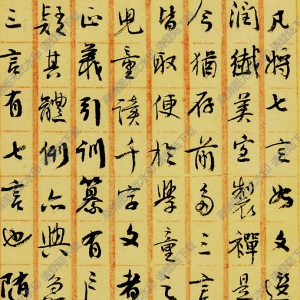 凡將七言如文選
潤纖美宜製禪是
今猶存前多三言
皆取便於學童之
兒童讀千字文者
正義引訓纂有戶
疑其體例亦與急
三言有七言也隨